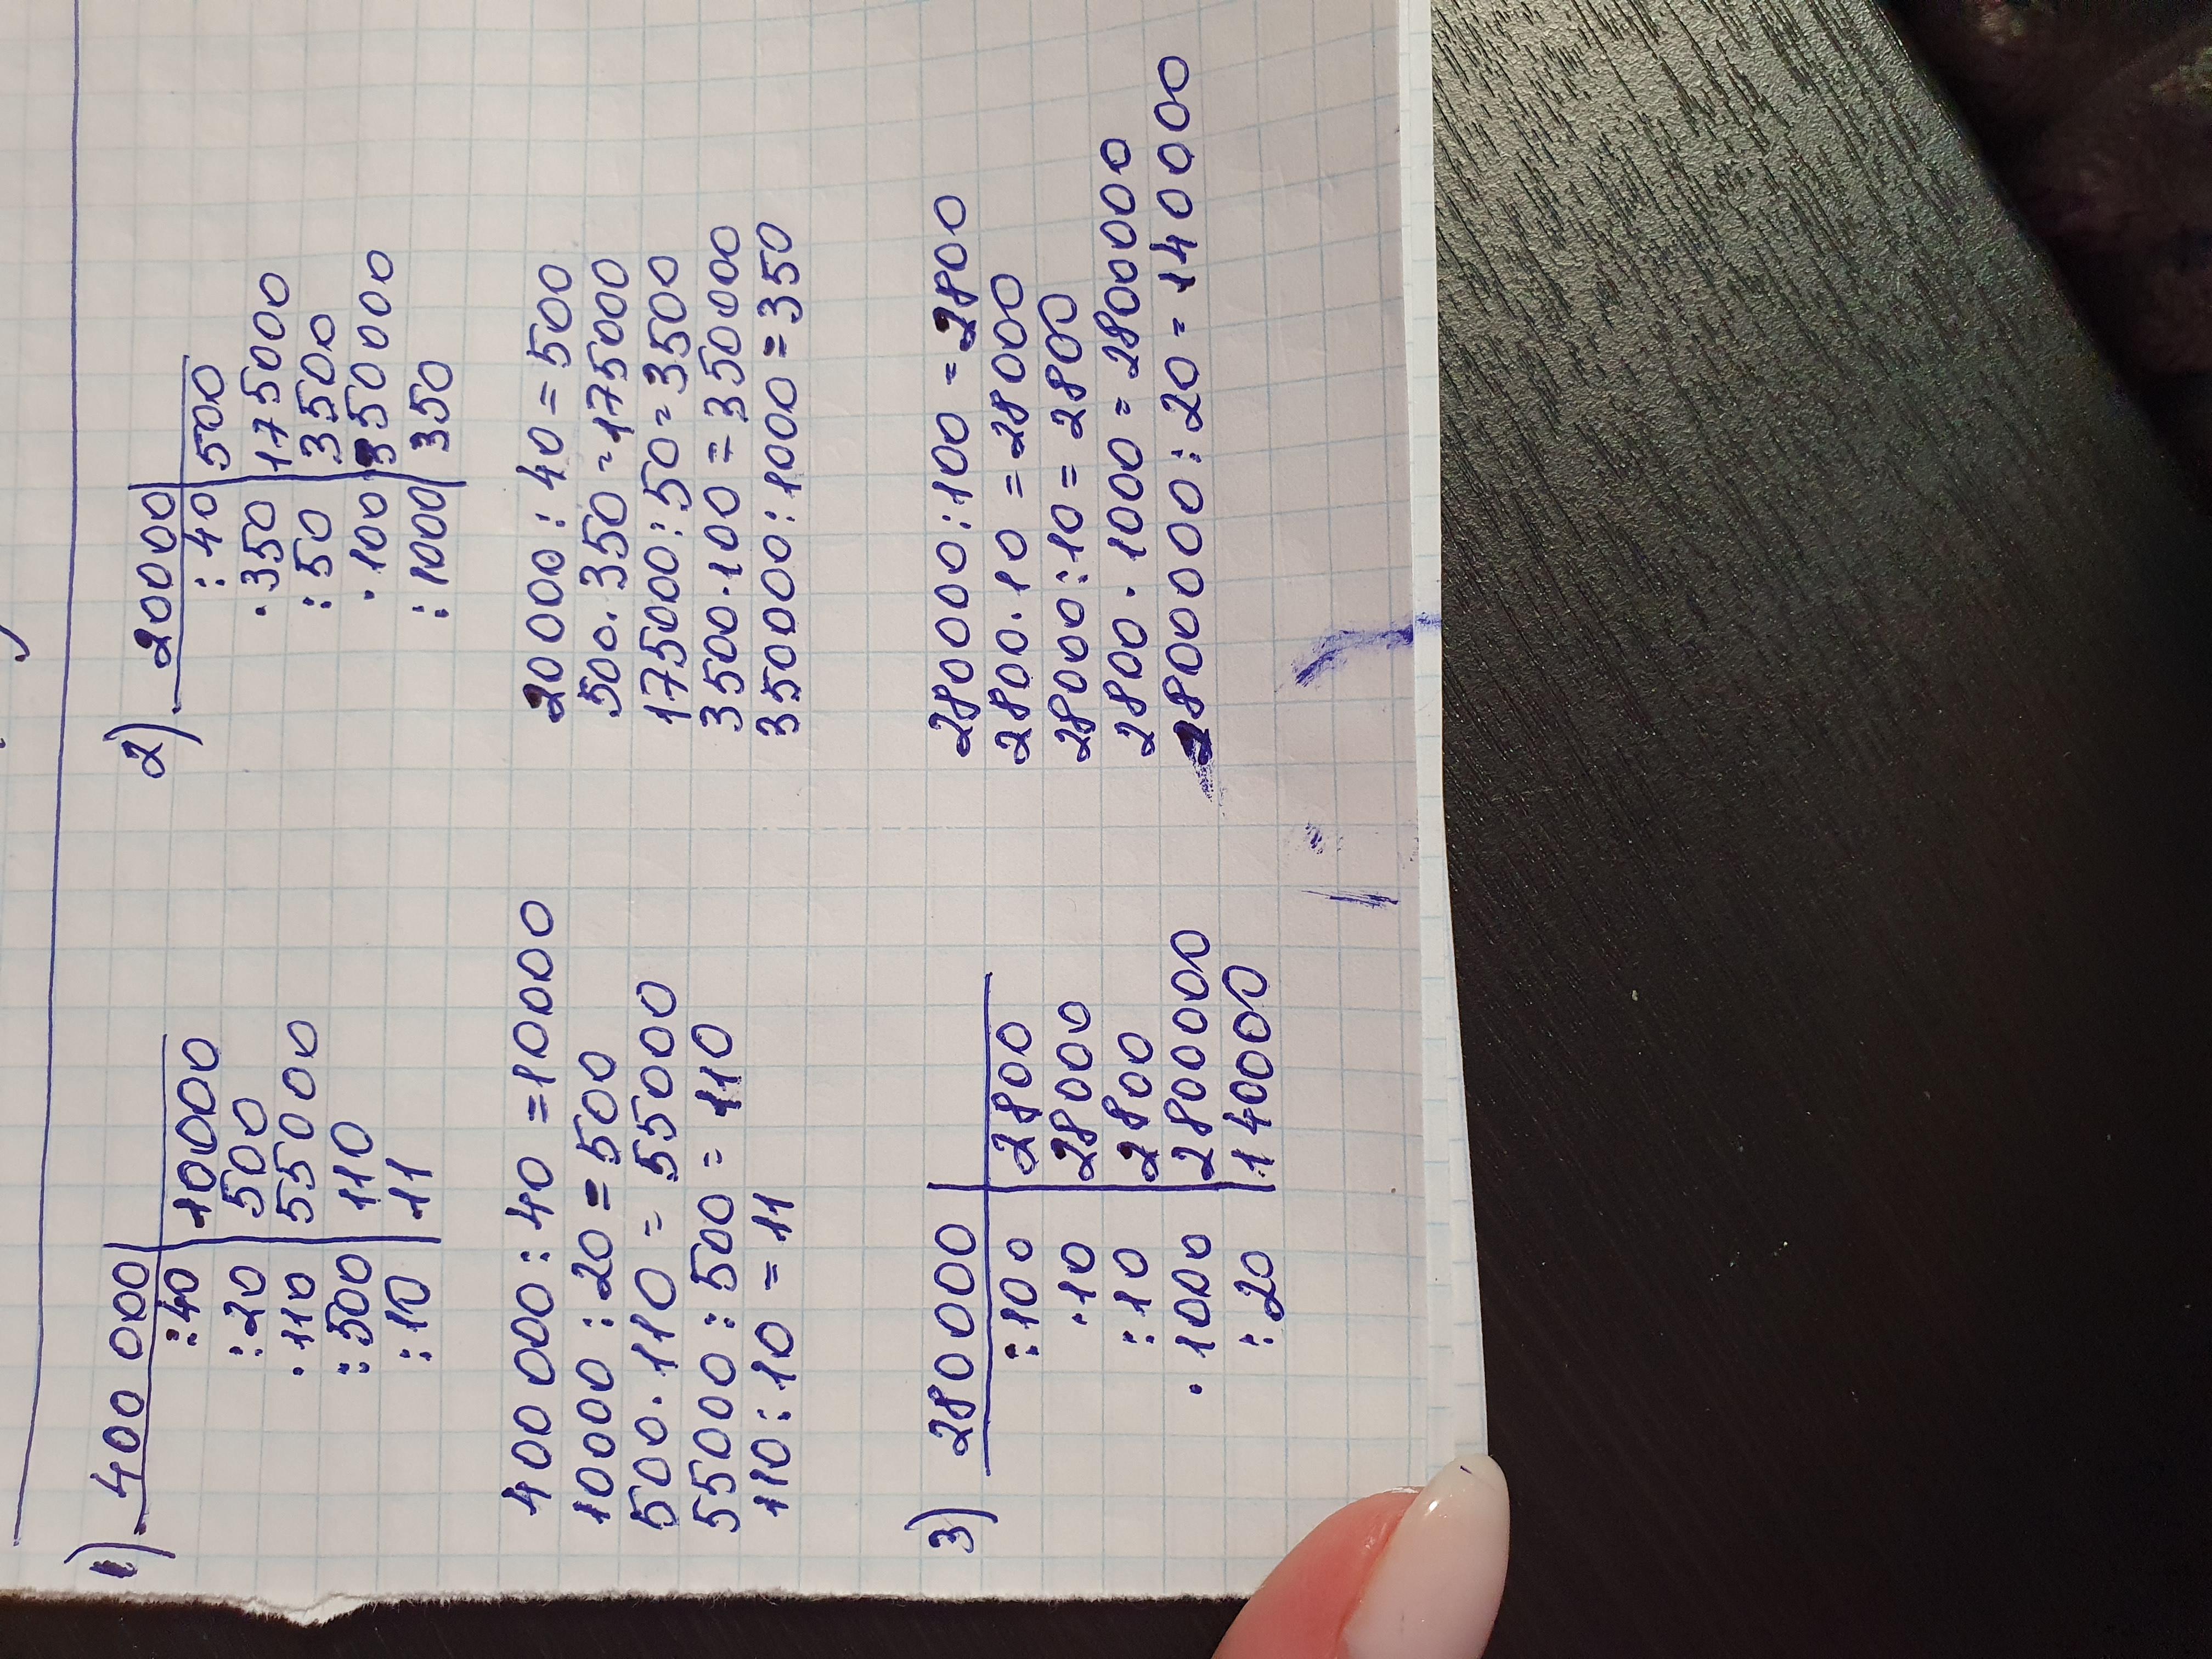 1) 400 000
:40 | 10000
:20 | 500
·110 | 55000
:500 | 110
:10 | 11
400 000:40=10000
10000:20=500
500·110=55000
55000:500=110
110:10=11
2) 20000
:40 | 500
·350 | 175000
:50 | 3500
·100 | 350000
:1000 | 350
20000:40=500
500·350=175000
175000:50=3500
3500·100=350000
350000:1000=350
3) 280 000
:100 | 2800
·10 | 28000
:10 | 2800
·1000 | 2800000
:20 | 140000
280000:100=2800
2800·10=28000
28000:10=2800
2800·1000=2800000
2800000:20=140000